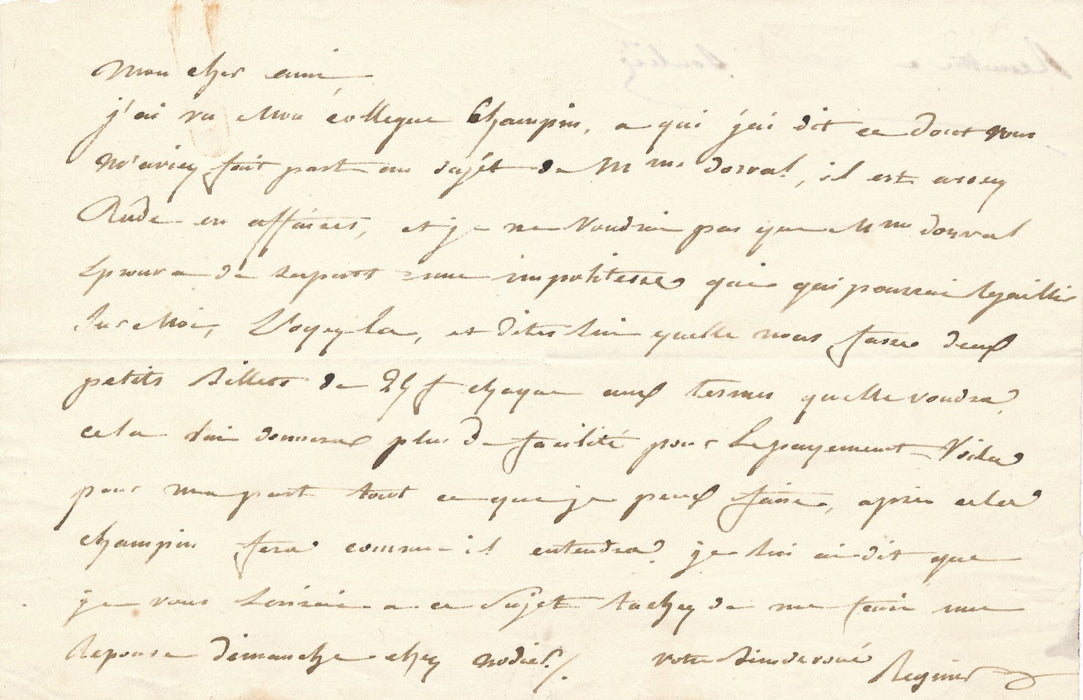 Mon cher ami
j'ai vu Mon collegue Champin, a qui j'ai dit ce dont vous
m'aviez fait part au sujet de Mme dorval, il est assez
Rude en affaires, et je ne voudrai pas que Mme dorval
Eprouva de sa part une impolitesse qui pourrai rejaillir
sur Moi, Voyez la, et dites lui quelle nous fasse deux
petits Billets de 25 f chaque aux termes quelle voudra,
cela lui donnera plus de facilité pour le payement Voila
pour ma part tout ce que je peux faire, apres cela
champin fera comme il entendra je lui ai dit que
je vous Ecrirai a ce Sujet tachez de me faire une
Reponse dimanche chez nodier./. votre bien devoué
Regnier